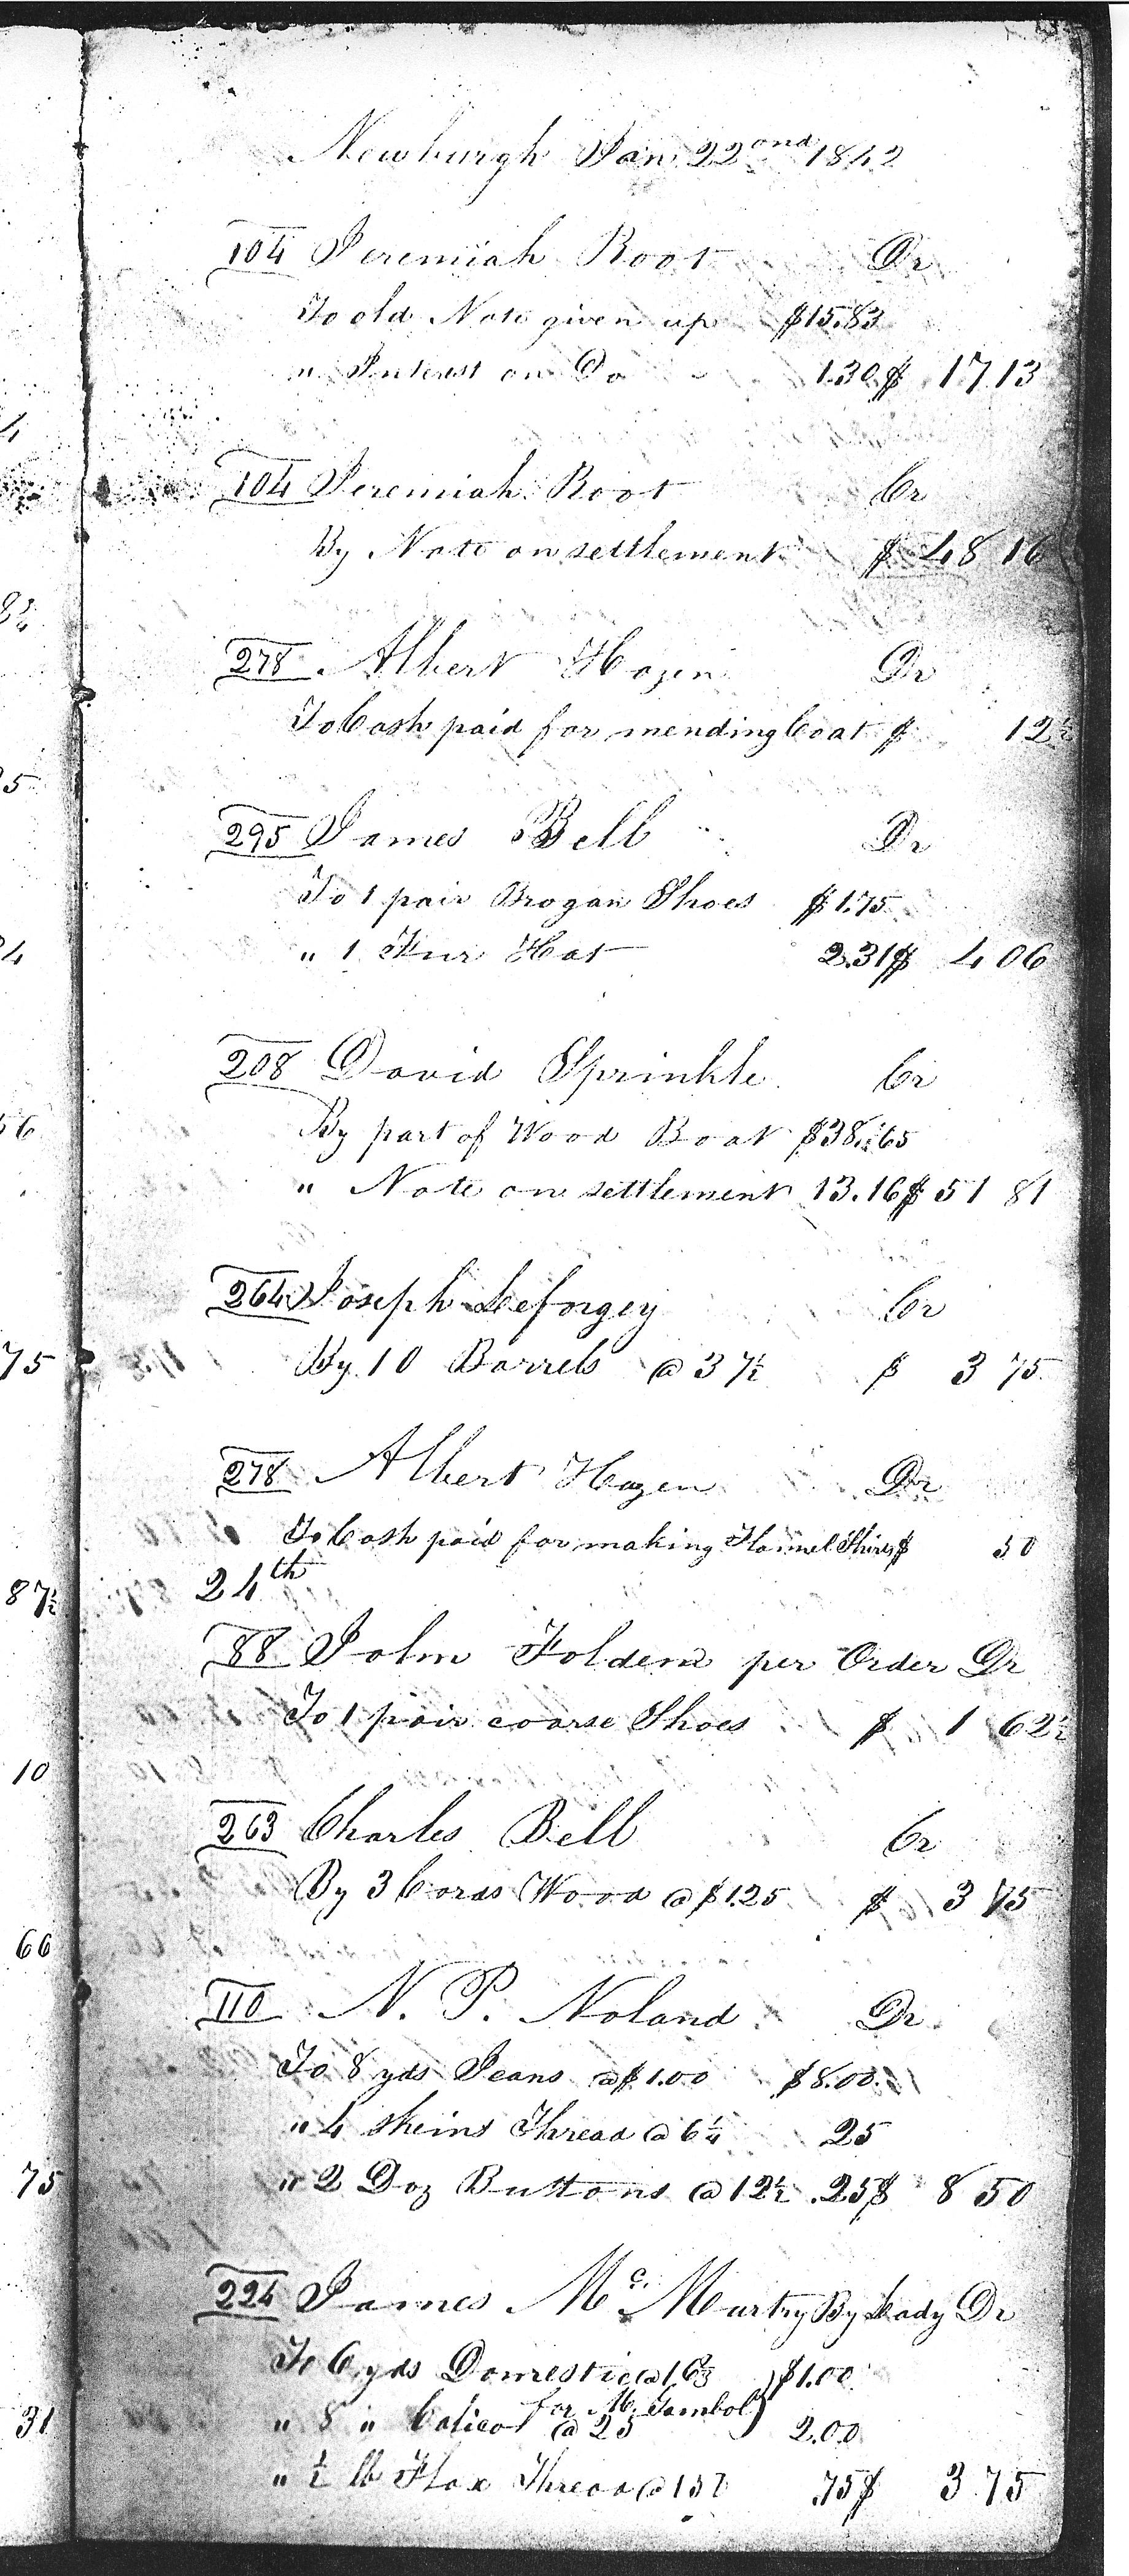 Newburgh Jan 22ond 1842
104 Jeremiah Root Dr
To old Note given up $15.83
" Interest on Do 1.30 $ 17 13
104 Jeremiah Root Cr
By Note on settlement $ 48 16
278 Albert Hazen Dr
To Cash paid for mending Coat $ 12½
295 James Bell Dr
To 1 pair Brogan Shoes $1.75
" 1 Fur Hat 2.31 $ 4 06
208 David Sprinkle Cr
By part of Wood Boat $38.65
" Note on settlement 13.16 $ 51 81
264 Joseph Leforgey Cr
By 10 Barrels @ 37½ $ 3 75
278 Albert Hazen Dr
To Cash paid for making Flannel Shirts $ 50
24th
88 John Folden per Order Dr
To 1 pair coarse Shoes $ 1 62½
263 Charles Bell Cr
By 3 Cords Wood @ $1.25 $ 3 75
110 N. P. Noland Dr
To 8 yds Jeans @ $1.00 $8.00
" 4 skeins Thread @ 6¼ 25
" 2 Doz Buttons @ 12½ .25 $ 8 50
224 James McMurtry By Lady Dr
To 6 yds Domestic @ 16⅔ $1.00
for
" 8 " Calico @ 25 2.00
" ½ lb Flax Thread @ 150 .75 $ 3 75